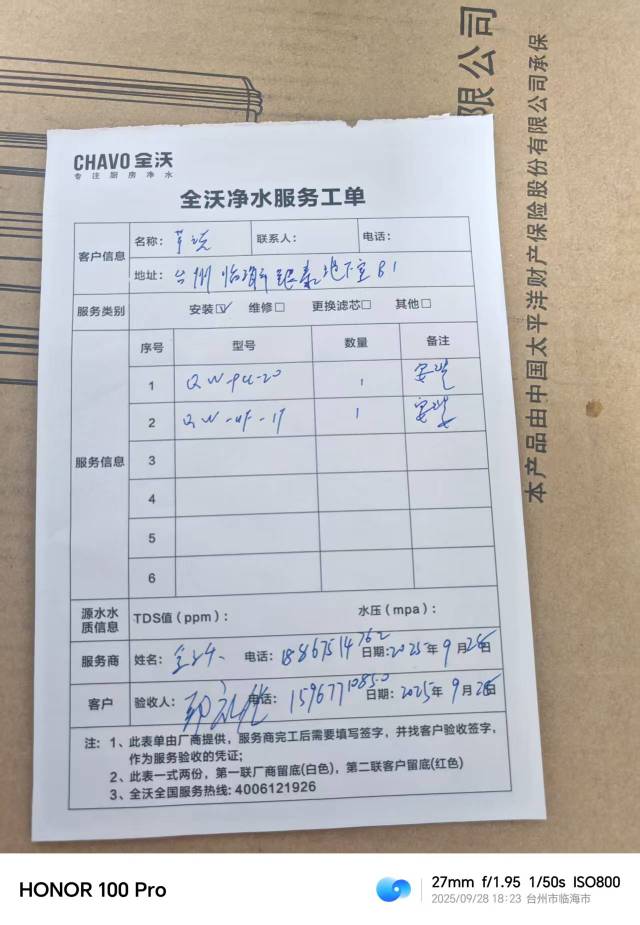 限公司
本产品由中国太平洋财产保险股份有限公司承保
CHAVO 全沃
专注厨房净水
全沃净水服务工单
客户信息 名称： 联系人： 电话：
地址：台州 银泰地下室B1
服务类别 安装☑ 维修□ 更换滤芯□ 其他□
服务信息 序号 型号 数量 备注
1 QW-PU-20 1 安装
2 QW-UF-1F 1 安装
3
4
5
6
源水水质信息 TDS值（ppm）： 水压（mpa）：
服务商 姓名： 电话：18867514762 日期：2025年9月26日
客户 验收人： 电话：15967710850 日期：2025年9月26日
注：1、此表单由厂商提供，服务商完工后需要填写签字，并找客户验收签字，
作为服务验收的凭证；
2、此表一式两份，第一联厂商留底(白色)，第二联客户留底(红色)
3、全沃全国服务热线：4006121926
HONOR 100 Pro
27mm f/1.95 1/50s ISO800
2025/09/28 18:23 台州市临海市